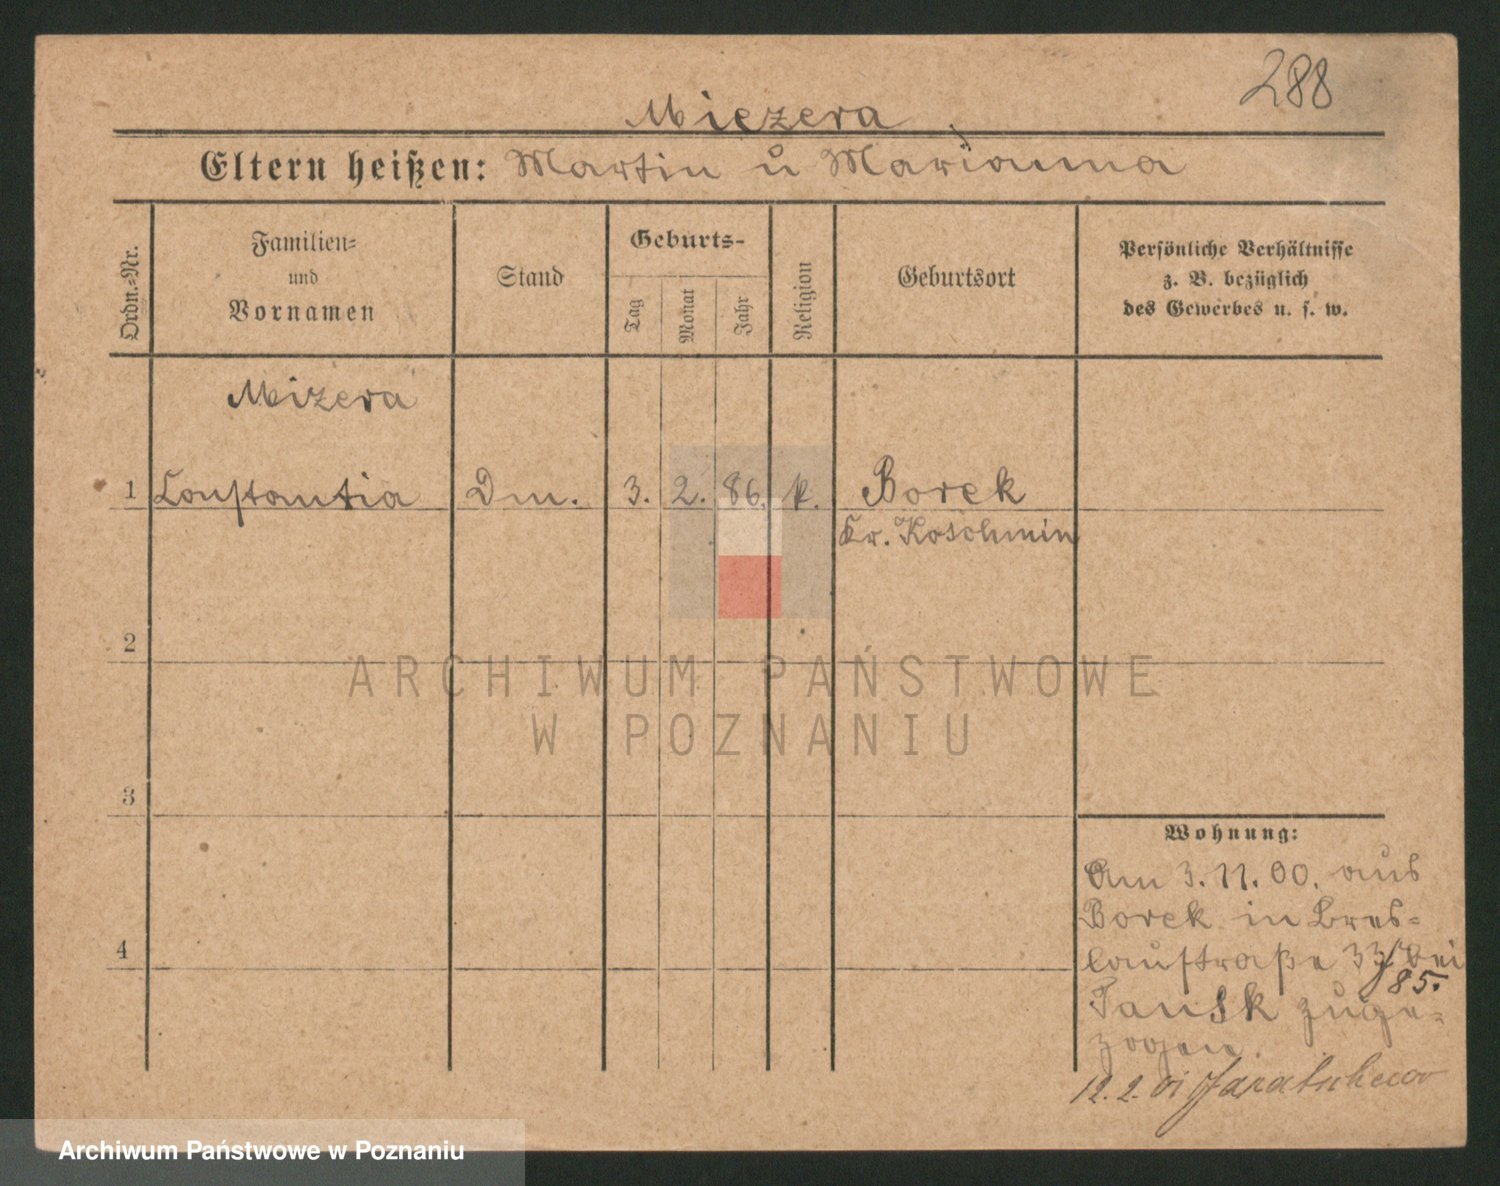 288
Miezera
Eltern heißen: Martin u Marianna
Ordn.-Nr.
Familien-
und
Vornamen
Stand
Geburts-
Tag
Monat
Jahr
Religion
Geburtsort
Persönliche Verhältnisse
z. B. bezüglich
des Gewerbes u. s. w.
Mizera
1 Constantia Dm. 3. 2. 86. k. Borek
Kr. Koschmin
2
ARCHIWUM PAŃSTWOWE
W POZNANIU
3
Wohnung:
Am 3.11.00. aus
Borek in Bres-
4
laustraße 33/ bei
85.
zuge-
zogen.
12.2.01
Archiwum Państwowe w Poznaniu